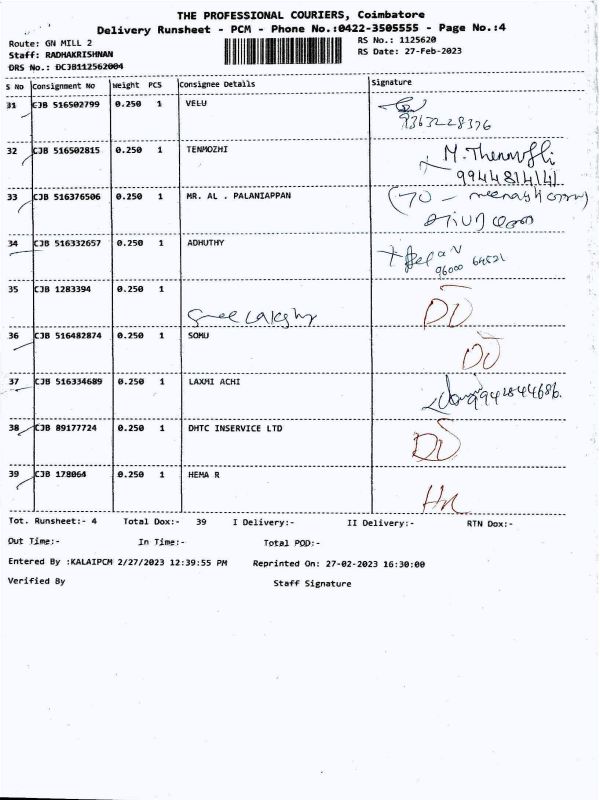 THE PROFESSIONAL COURIERS, Coimbatore
Delivery Runsheet - PCM - Phone No.:0422-3505555 - Page No.:4
Route: GN MILL 2
RS No.: 1125620
Staff: RADHAKRISHNAN
RS Date: 27-Feb-2023
DRS No.: DCJB112562004
S No Consignment No Weight PCS Consignee Details Signature
31 CJB 516502799 0.250 1 VELU
9363228376
32 CJB 516502815 0.250 1 TENMOZHI M.Thenmozhli
9944814141
33 CJB 516376506 0.250 1 MR. AL . PALANIAPPAN
34 CJB 516332657 0.250 1 ADHUTHY
96000 64521
35 CJB 1283394 0.250 1
Sree Lakshmy
36 CJB 516482874 0.250 1 SOMU
37 CJB 516334689 0.250 1 LAXMI ACHI
9942844686.
38 CJB 89177724 0.250 1 DHTC INSERVICE LTD
39 CJB 178064 0.250 1 HEMA R
Tot. Runsheet:- 4 Total Dox:- 39 I Delivery:- II Delivery:- RTN Dox:-
Out Time:- In Time:- Total POD:-
Entered By :KALAIPCM 2/27/2023 12:39:55 PM Reprinted On: 27-02-2023 16:30:00
Verified By Staff Signature